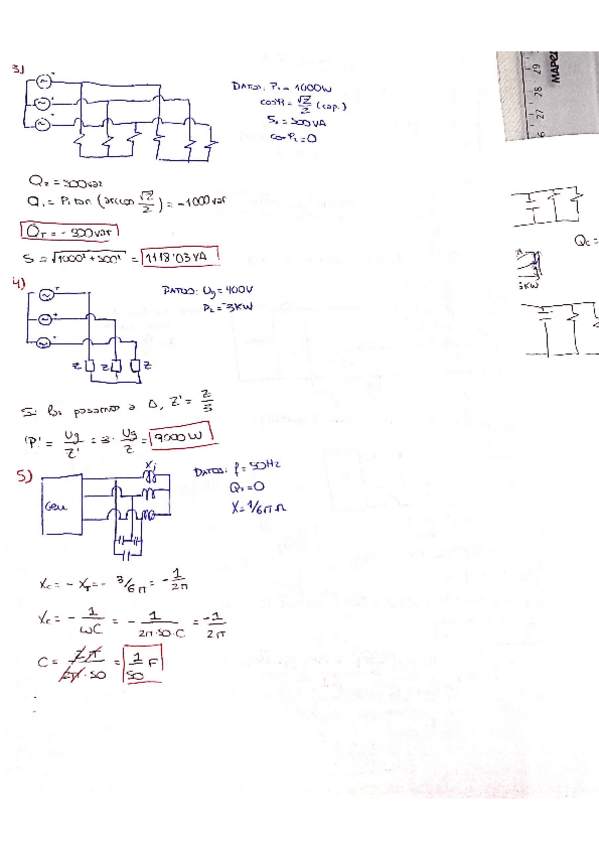 3)
DATOS: P₁ = 1000W
cosφ₁ = √2/2 (cap.)
S₂ = 500VA
cosφ₂ = 0
Q₂ = 500var
Q₁ = P₁ tan (arccos √2/2) = -1000var
Q_T = -500var
S = √1000² + 500² = 1118'03 VA
4)
DATOS: Ug = 400V
P₂ = 3KW
Z Z Z
Si los pasamos a Δ, Z' = Z/3
P' = Ug/Z' = 3 · Ug/Z = 9000W
5)
Xj
Gen
DATOS: f = 50Hz
Q_T = 0
X = 1/6π Ω
Xc = - X_T = - 3/6π = - 1/2π
Xc = - 1/ωC = - 1/2π·50·C = -1/2π
C = 2π/2π·50 = 1/50 F
MAPED
6 27 28 29
Qc =
3KW